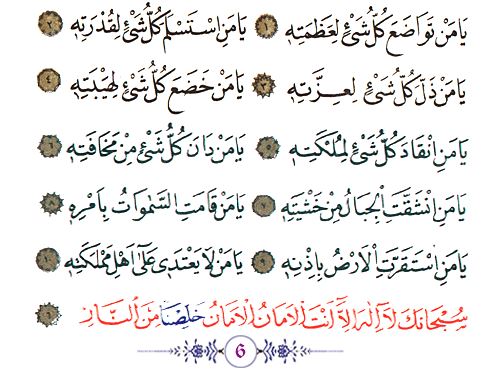 يَا مَنْ تَوَاضَعَ كُلُّ شَىْءٍ لِعَظَمَتِهٖ ١ يَا مَنِ اسْتَسْلَمَ كُلُّ شَىْءٍ لِقُدْرَتِهٖ ٢
يَا مَنْ ذَلَّ كُلُّ شَىْءٍ لِعِزَّتِهٖ ٣ يَا مَنْ خَضَعَ كُلُّ شَىْءٍ لِهَيْبَتِهٖ ٤
يَا مَنِ انْقَادَ كُلُّ شَىْءٍ لِمُلْكَتِهٖ ٥ يَا مَنْ دَانَ كُلُّ شَىْءٍ مِنْ مَخَافَتِهٖ ٦
يَا مَنِ انْشَقَّتِ الْجِبَالُ مِنْ خَشْيَتِهٖ ٧ يَا مَنْ قَامَتِ السَّمٰوَاتُ بِاَمْرِهٖ ٨
يَا مَنِ اسْتَقَرَّتِ الْاَرْضُ بِاِذْنِهٖ ٩ يَا مَنْ لَا يَعْتَدٖى عَلٰٓى اَهْلِ مَمْلَكَتِهٖ ١٠
سُبْحَانَكَ لَٓا اِلٰهَ اِلَّٓا اَنْتَ الْاَمَانُ الْاَمَانُ خَلِّصْنَا مِنَ النَّارِ
6